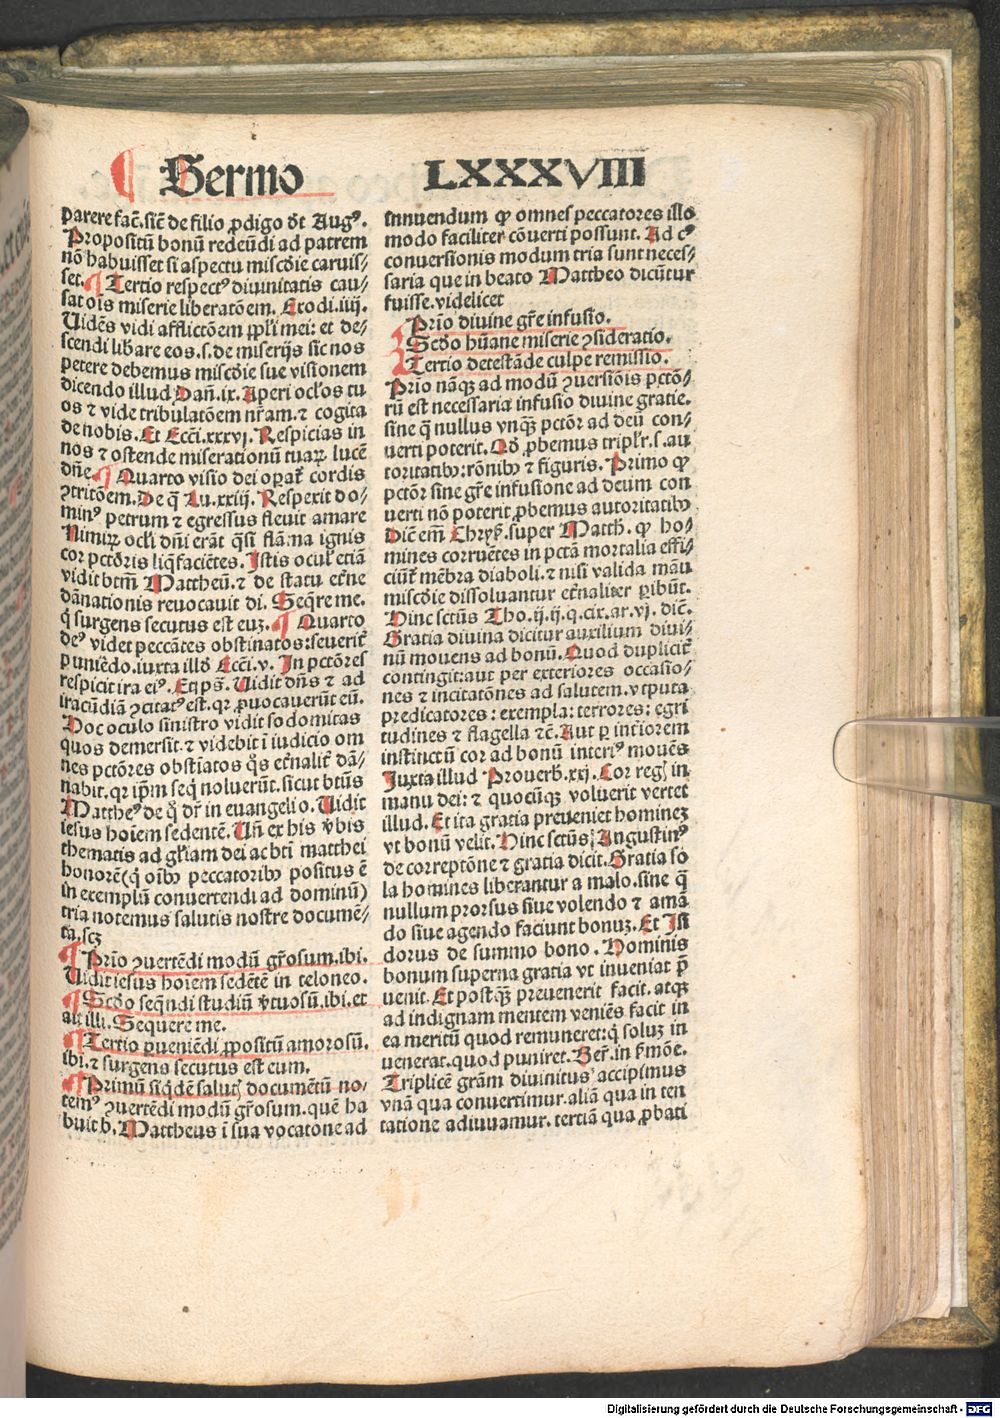 Sermo LXXXVIII
parere fac̄. sic̄ de filio ꝓdigo dt̄ Augꝰ.
Propositū bonū redeūdi ad patrem
nō habuisset si aspectu miscd̄ie caruis⸗
set. ¶ Tertio respectꝰ diuinitatis cau⸗
sat oīs miserie liberatōem. Exodi. iiij.
Uidēs vidi afflictōem ppl̄i mei: et de⸗
scendi lib̄are eos. s. de miserijs sic nos
petere debemus miscd̄ie sue visionem
dicendo illud Dan̄. ix. Aperi ocl̄os tu
os ⁊ vide tribulatōem nr̄am. ⁊ cogita
de nobis. Et Ecc̄i. xxxvj. Respicias in
nos ⁊ ostende miserationū tuaꝝ lucē
dn̄e. ¶ Quarto visio dei oꝑat̄ cordis
ꝯtritōem. De q̄ Lu. xxiij. Respexit do⸗
minꝰ petrum ⁊ egressus fleuit amare
Nimiꝝ ocl̄i dn̄i erāt q̄si flāma ignis
cor pctōris liq̄faciētes. Istis ocul̄ etiā
vidit btm̄ Mattheū. ⁊ de statu et̄ne
dānationis reuocauit di. Seq̄re me.
q̇ surgens secutus est euꝫ. ¶ Quarto
deꝰ videt peccātes obstinatos: seuerit̄
puniēdo. iuxta illđ Ecc̄i. v. In pctōres
respicit ira eiꝰ. Et ps̄. Uidit dn̄s ⁊ ad
iracūdiā ꝯcitatꝰ est. qꝛ ꝓuocauerūt eū.
Hoc oculo sinistro vidit sodomitas
quos demersit. ⁊ videbit ī iudicio om
nes pctōres obstīatos q̇s et̄nalit̄ dā⸗
nabit. qꝛ ip̄m seq̇ noluerūt. sicut btūs
Mattheꝰ de q̇ dr̄ in euangelio. Uidit
iesus hoīem sedentē. Un̄ ex his v̄bis
thematis ad gl̄iam dei ac btī matthei
honorē (q̇ oībꝰ peccatoribꝰ positus ē
in exemplū conuertendi ad dominū)
tria notemus salutis nostre documē⸗
ta. scꝫ
¶ Prīo ꝯuertēdi modū gr̄osum. ibi.
Uidit iesus hoīem sedētē in teloneo.
¶ Scđo seq̄ndi studiū v̄tuosū. ibi. et
ait illi. Sequere me.
¶ Tertio ꝑueniēdi ꝓpositū amorosū.
ibi. ⁊ surgens secutus est eum.
¶ Primū siq̇dē salutꝭ documētū no⸗
temꝰ ꝯuertēdi modū gr̄osum. quē ha
buit b. Mattheus ī sua vocatone ad
innuendum ꝙ omnes peccatores illo
modo faciliter cōuerti possunt. Ad cꝰ
conuersionis modum tria sunt neces⸗
saria que in beato Mattheo dicūtur
fuisse. videlicet
Prīo diuine gr̄e infusio.
Scđo hūane miserie ꝯsideratio.
Tertio detestāde culpe remissio.
Prīo nāqꝫ ad modū ꝯuersiōis pctō⸗
rū est necessaria infusio diuine gratie.
sine q̄ nullus vnqꝫ pctōr ad deū con⸗
uerti poterit. Qđ ꝓbemus tripl̄r. s. au
toritatibꝰ: rōnibꝰ ⁊ figuris. Primo ꝙ
pctōr sine gr̄e infusione ad deum con
uerti nō poterit ꝓbemus autoritatibꝰ
Dic̄ em̄ Chryꝰ. super Matth̄. ꝙ ho⸗
mines corruētes in pctā mortalia effi⸗
ciūt̄ mēbra diaboli. ⁊ nisi valida manu
miscd̄ie dissoluantur et̄naliter ꝑibūt.
Hinc sctūs Tho. ij. ij. q. cix. ar. vj. dic̄.
Gratia diuina dicitur auxilium diui⸗
nū mouens ad bonū. Quod duplicit̄
contingit: aut per exteriores occasio⸗
nes ⁊ incitatōnes ad salutem. vtputa
predicatores: exempla: terrores: egri
tudines ⁊ flagella ⁊c̄. Aut ꝑ int̄iorem
instinctū cor ad bonū interiꝰ mouēs
Juxta illud Prouerb̄. xxj. Cor regꝭ in
manu dei: ⁊ quocūqꝫ voluerit vertet
illud. Et ita gratia preueniet homineꝫ
vt bonū velit. Hinc sctūs Augustinꝰ
de correptōne ⁊ gratia dicit. Gratia so
la homines liberantur a malo. sine q̄
nullum prorsus siue volendo ⁊ amā
do siue agendo faciunt bonuꝫ. Et Isi
dorus de summo bono. Hominis
bonum superna gratia vt inueniat p̄
uenit. Et postqꝫ preuenerit facit. atqꝫ
ad indignam mentem veniēs facit in
ea meritū quod remuneret: q̇ soluꝫ in
uenerat. quod puniret. Ber̄. in s̄mōe.
Triplicē grām diuinitus accipimus
vnā qua conuertimur. aliā qua in ten
tatione adiuuamur. tertiā qua ꝓbati
Digitalisierung gefördert durch die Deutsche Forschungsgemeinschaft - DFG